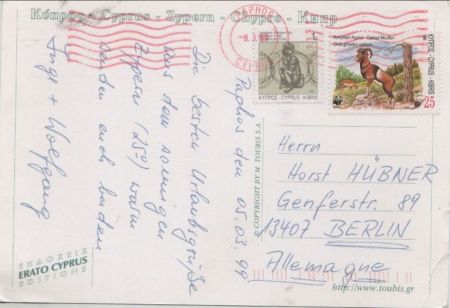 Κύπρος - Cyprus - Zypern - Chypre - Кипр
PAPHOS
-8.3.99
1
ΚΥΠΡΟΣ-CYPRUS-KIBRIS
Cyprus Mouflon
Ovis gmelini ophion
WWF
ΚΥΠΡΟΣ-CYPRUS-KIBRIS
25
Paphos den 05.03.99
Die besten Urlaubsgrüße
aus dem sonnigen
Zypern (25°) warm
senden euch beiden
Inge + Wolfgang
© COPYRIGHT BY M. TOUBIS S.A.
Herrn
Horst HÜBNER
Genferstr. 89
13407 BERLIN
Allemagne
ΕΚΔΟΣΕΙΣ
ERATO CYPRUS
EDITIONS
http://www.toubis.gr